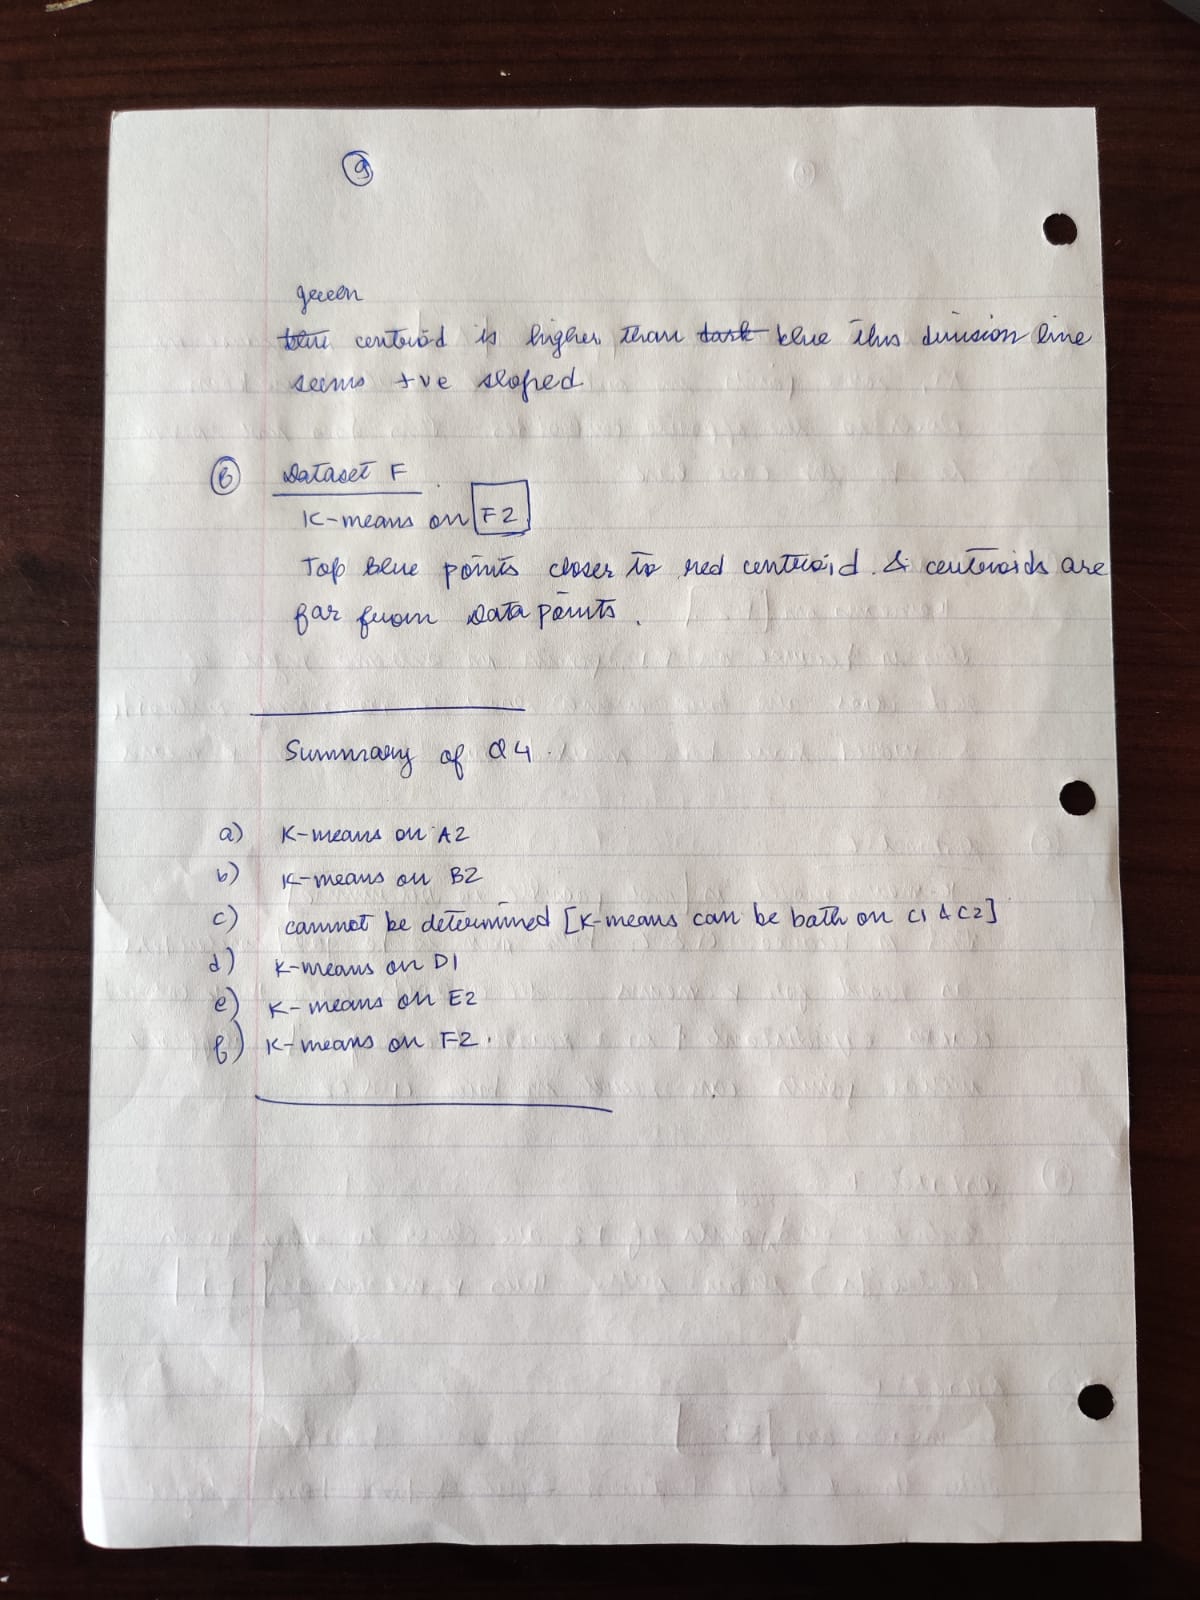 9
green
blue centroid is higher than dark blue thus division line
seems +ve sloped
6 Dataset F
K-means on F2
Top blue points closer to red centroid. & centroids are
far from data points.
Summary of Q4.
a) K-means on A2
b) K-means on B2
c) cannot be determined [K-means can be both on C1 & C2]
d) K-means on D1
e) K-means on E2
f) K-means on F2.